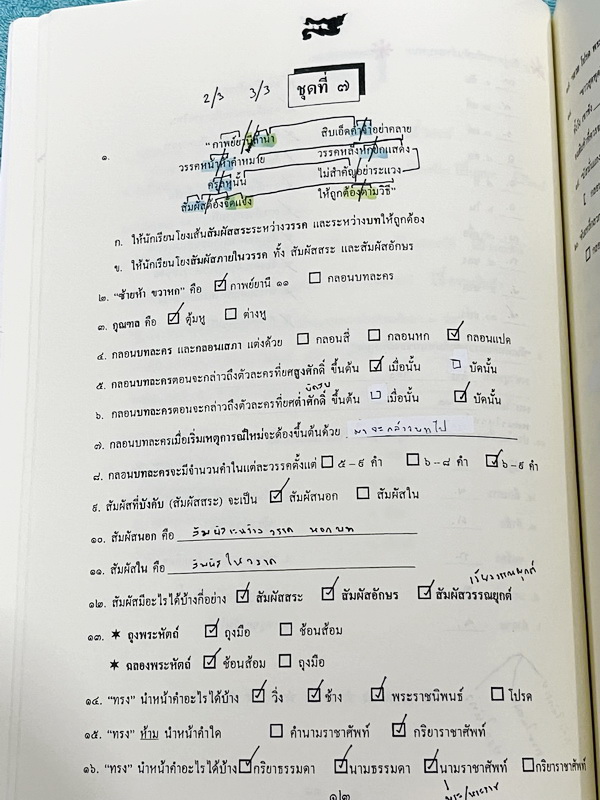 2/3 3/3 ชุดที่ ๗
๑. "กาพย์ยานีลำนำ สิบเอ็ดคำจำอย่าคลาย
วรรคหน้าห้าคำหมาย วรรคหลังหกยกแสดง
ครุลหุนั้น ไม่สำคัญอย่าระแวง
สัมผัสต้องจัดแจง ให้ถูกต้องตามวิธี"
ก. ให้นักเรียนโยงเส้นสัมผัสสระระหว่างวรรค และระหว่างบทให้ถูกต้อง
ข. ให้นักเรียนโยงสัมผัสภายในวรรค ทั้ง สัมผัสสระ และสัมผัสอักษร
๒. "ซ้ายห้า ขวาหก" คือ กาพย์ยานี ๑๑ กลอนบทละคร
๓. กุณฑล คือ ตุ้มหู ต่างหู
๔. กลอนบทละคร และกลอนเสภา แต่งด้วย กลอนสี่ กลอนหก กลอนแปด
๕. กลอนบทละครตอนจะกล่าวถึงตัวละครที่ยศสูงศักดิ์ ขึ้นต้น เมื่อนั้น บัดนั้น
๖. กลอนบทละครตอนจะกล่าวถึงตัวละครที่ยศต่ำศักดิ์ ขึ้นต้น เมื่อนั้น บัดนั้น
๗. กลอนบทละครเมื่อเริ่มเหตุการณ์ใหม่จะต้องขึ้นต้นด้วย มาจะกล่าวบทไป
๘. กลอนบทละครจะมีจำนวนคำในแต่ละวรรคตั้งแต่ ๕-๙ คำ ๖-๘ คำ ๖-๙ คำ
๙. สัมผัสที่บังคับ (สัมผัสสระ) จะเป็น สัมผัสนอก สัมผัสใน
๑๐. สัมผัสนอก คือ สัมผัสระหว่าง วรรค นอกบท
๑๑. สัมผัสใน คือ สัมผัส ในวรรค
๑๒. สัมผัสมีอะไรได้บ้างกี่อย่าง สัมผัสสระ สัมผัสอักษร สัมผัสวรรณยุกต์
๑๓. ★ ถุงพระหัตถ์ ถุงมือ ช้อนส้อม
★ ฉลองพระหัตถ์ ช้อนส้อม ถุงมือ
๑๔. "ทรง" นำหน้าคำอะไรได้บ้าง วิ่ง ช้าง พระราชนิพนธ์ โปรด
๑๕. "ทรง" ห้าม นำหน้าคำใด คำนามราชาศัพท์ กริยาราชาศัพท์
๑๖. "ทรง" นำหน้าคำอะไรได้บ้าง กริยาธรรมดา นามธรรมดา นามราชาศัพท์ กริยาราชาศัพท์
๑๒